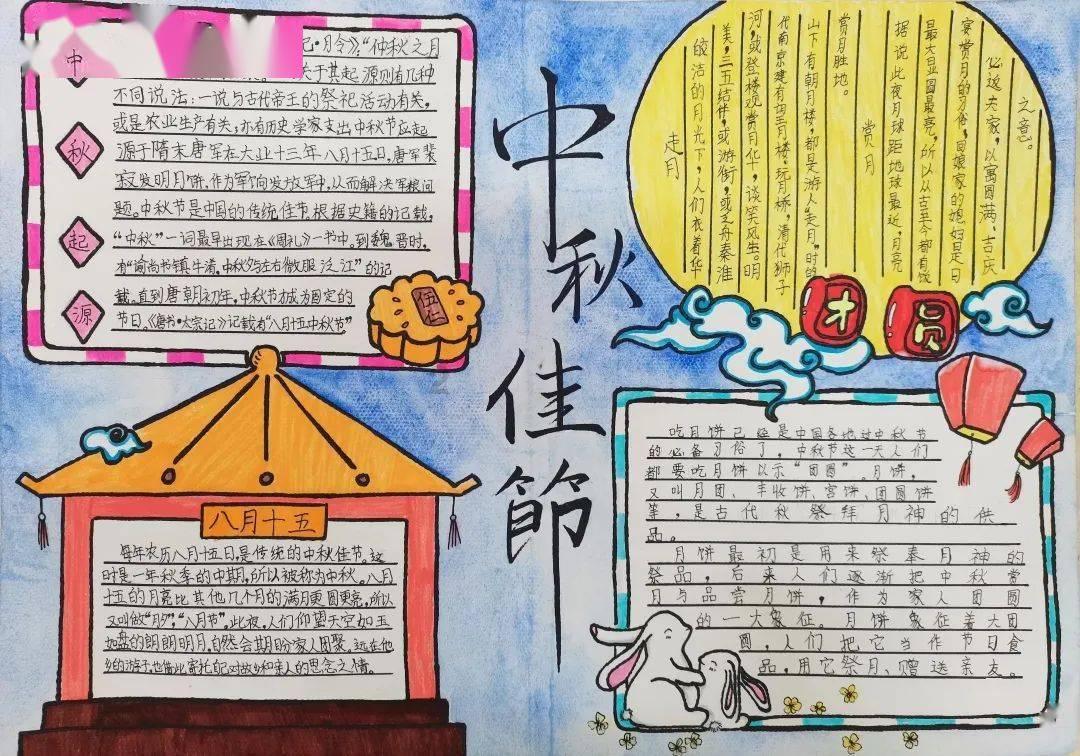 中秋起源
记·月令》,“仲秋之月
关于其起源则有几种
不同说法:一说与古代帝王的祭祀活动有关,
或是农业生产有关,亦有历史学家支出中秋节应起
源于隋末唐军在大业十三年八月十五日,唐军裴
寂发明月饼,作为军饷发放军中,从而解决军粮问
题。中秋节是中国的传统佳节,根据史籍的记载,
“中秋”一词最早出现在《周礼》一书中。到魏晋时,
有“谕尚书镇牛渚,中秋夕与左右微服泛江”的记
载。直到唐朝初年,中秋节才成为固定的
节日。《唐书·太宗记》记载有“八月十五中秋节”
伍仁
中秋佳節
之意。
必返夫家,以寓圆满、吉庆
宴赏月的习俗,回娘家的媳妇是日
最大显圆最亮,所以从古至今都有饮
据说此夜月球距地球最近,月亮
赏月
赏月胜地。
山下有朝月楼,都是游人“走月”时的
代南京建有望月楼、玩月桥,清代狮子
河,或登楼观赏月华,谈笑风生。明
美,三五结伴,或游街,或泛舟秦淮
皎洁的月光下,人们衣着华
走月
团圆
八月十五
每年农历八月十五日,是传统的中秋佳节。这
时是一年秋季的中期,所以被称为中秋。八月
十五的月亮比其他几个月的满月更圆更亮,所以
又叫做“月夕”“八月节”。此夜,人们仰望天空如玉
如盘的朗朗明月,自然会期盼家人团聚。远在他
乡的游子,也借此寄托自己对故乡和亲人的思念之情。
吃月饼已经是中国各地过中秋节
的必备习俗了,中秋节这一天人们
都要吃月饼以示“团圆”。月饼,
又叫月团、丰收饼、宫饼、团圆饼
等,是古代秋祭拜月神的供
品。
月饼最初是用来祭奉月神的
祭品,后来人们逐渐把中秋赏
月与品尝月饼,作为家人团圆
的一大象征。月饼象征着大团
圆,人们把它当作节日食
品,用它祭月、赠送亲友。